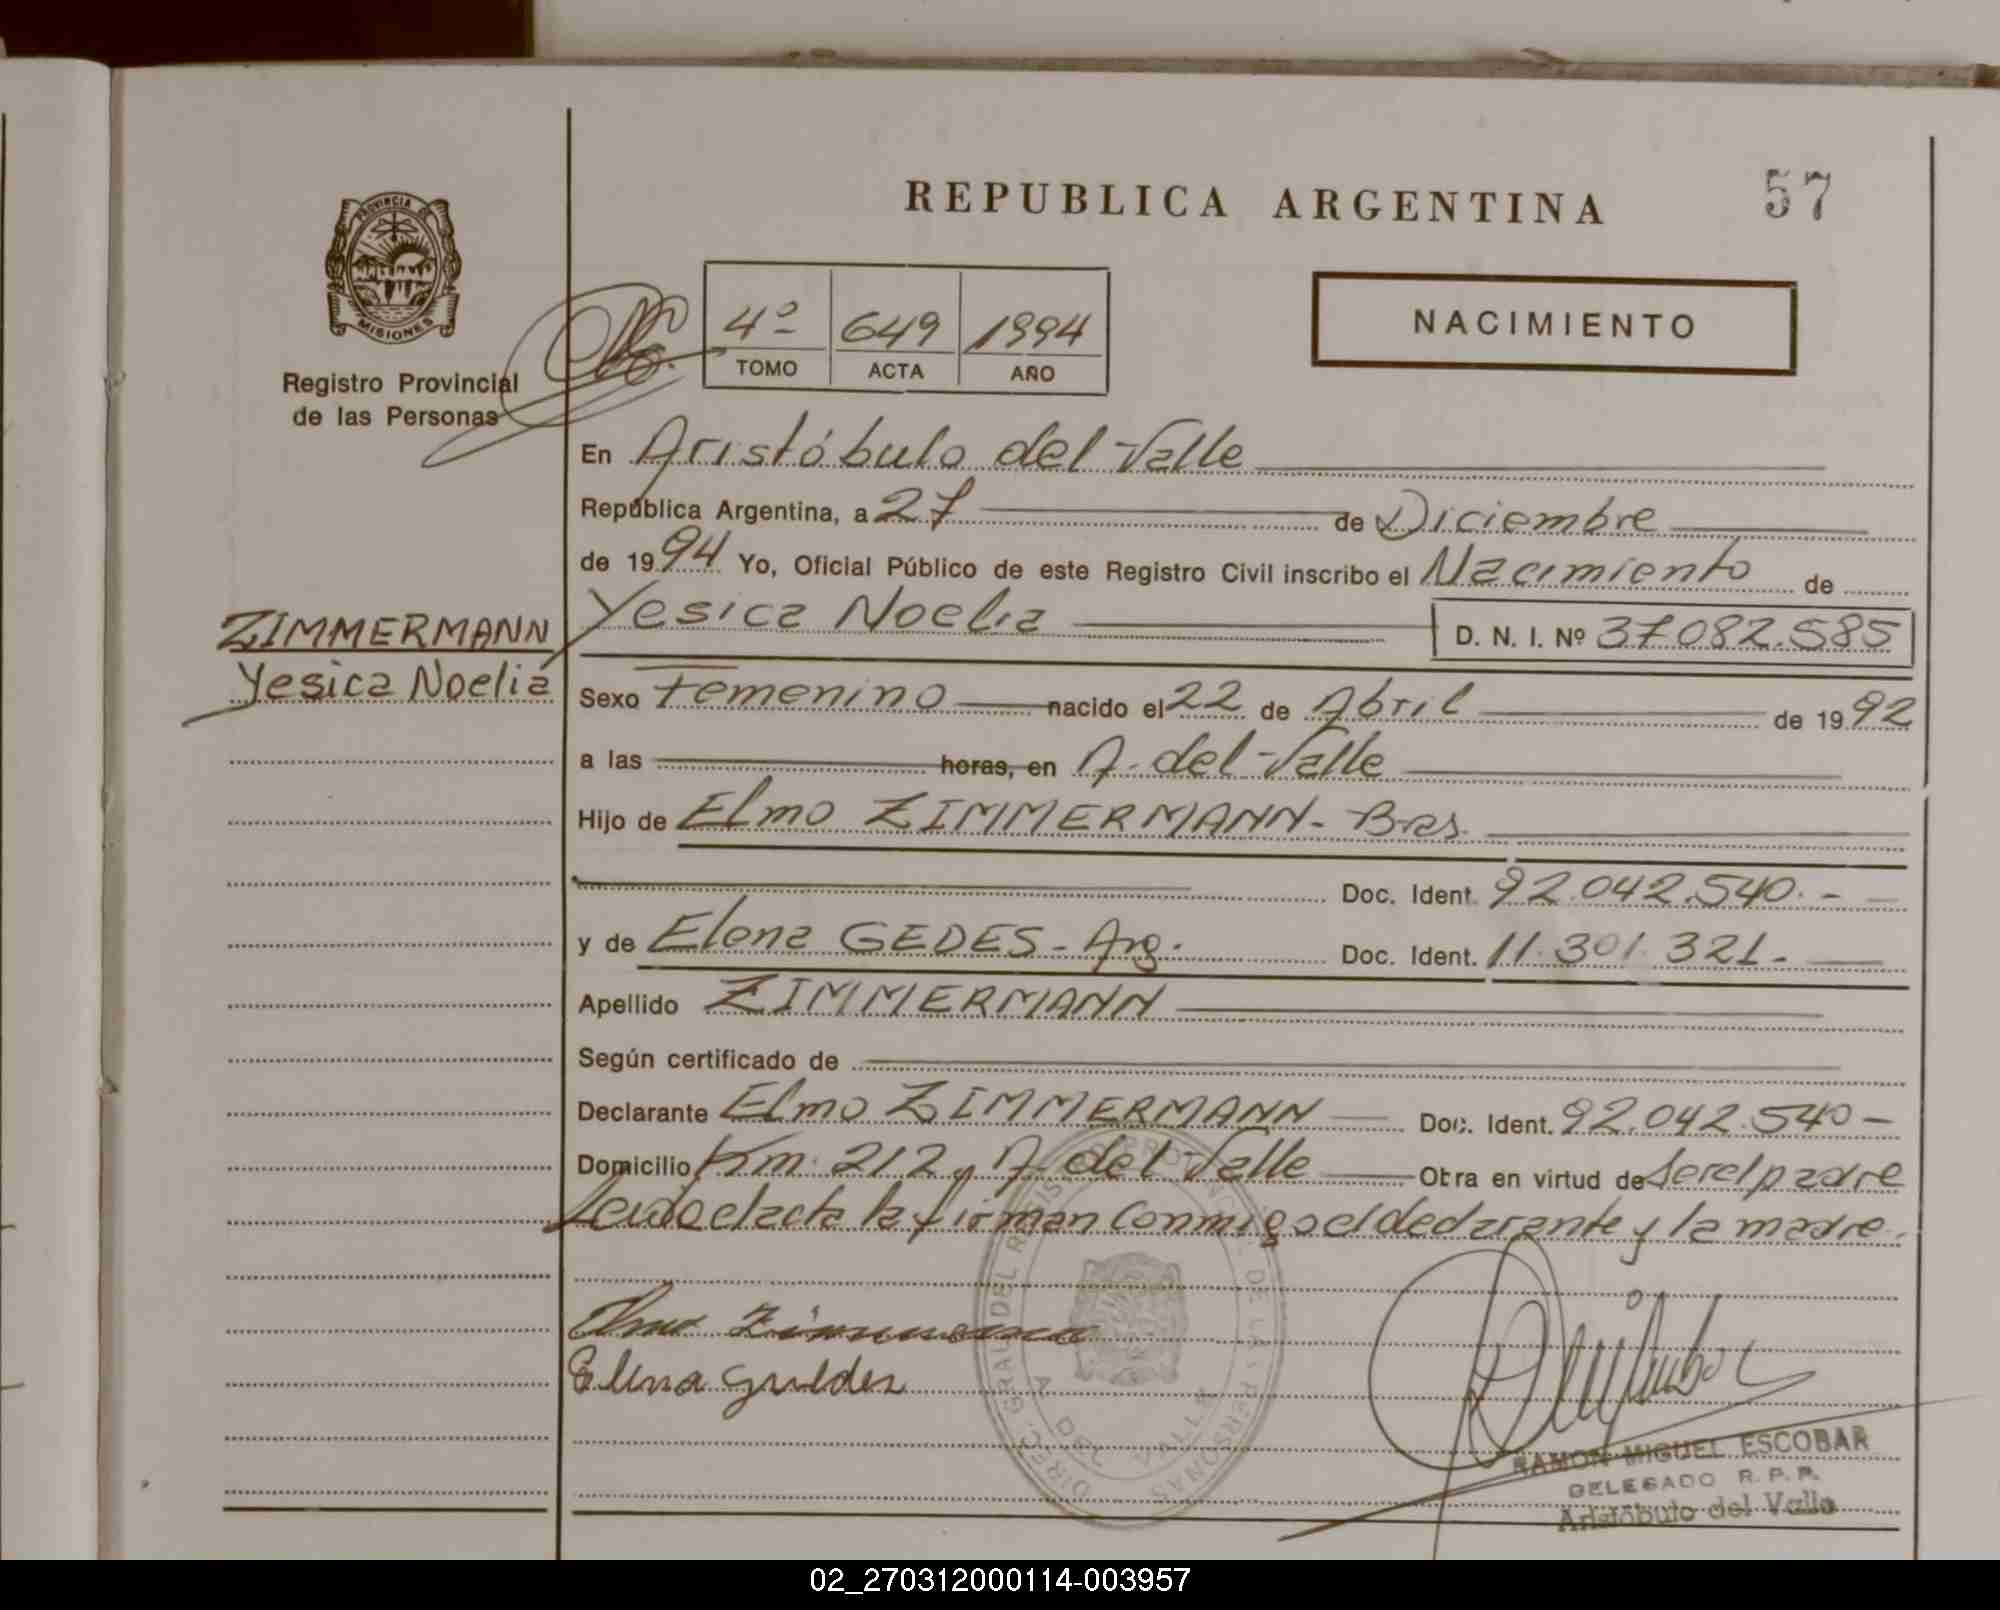 REPUBLICA ARGENTINA
57
PROVINCIA DE
MISIONES
Registro Provincial
de las Personas
4º 649 1994
TOMO ACTA AÑO
NACIMIENTO
En Aristóbulo del Valle
República Argentina, a 27 de Diciembre
de 1994 Yo, Oficial Público de este Registro Civil inscribo el Nacimiento de
Yesica Noelia D. N. I. Nº 37.082.585
ZIMMERMANN
Yesica Noelia
Sexo Femenino nacido el 22 de Abril de 1992
a las horas, en A. del Valle
Hijo de Elmo ZIMMERMANN- Bras.
Doc. Ident. 92.042.540.-
y de Elena GEDES- Arg. Doc. Ident. 11.301.321.-
Apellido ZIMMERMANN
Según certificado de
Declarante Elmo ZIMMERMANN Doc. Ident. 92.042.540-
Domicilio Km. 212, A. del Valle Obra en virtud de ser el padre
Leida el acta la firman conmigo el declarante y la madre.
Elmo Zimmermann
Elena Guedes
DIREC. GRAL. DEL REGISTRO PROVINCIAL DE LAS PERSONAS
A. DEL VALLE
RAMON MIGUEL ESCOBAR
DELEGADO R. P. P.
Aristóbulo del Valle
02_270312000114-003957